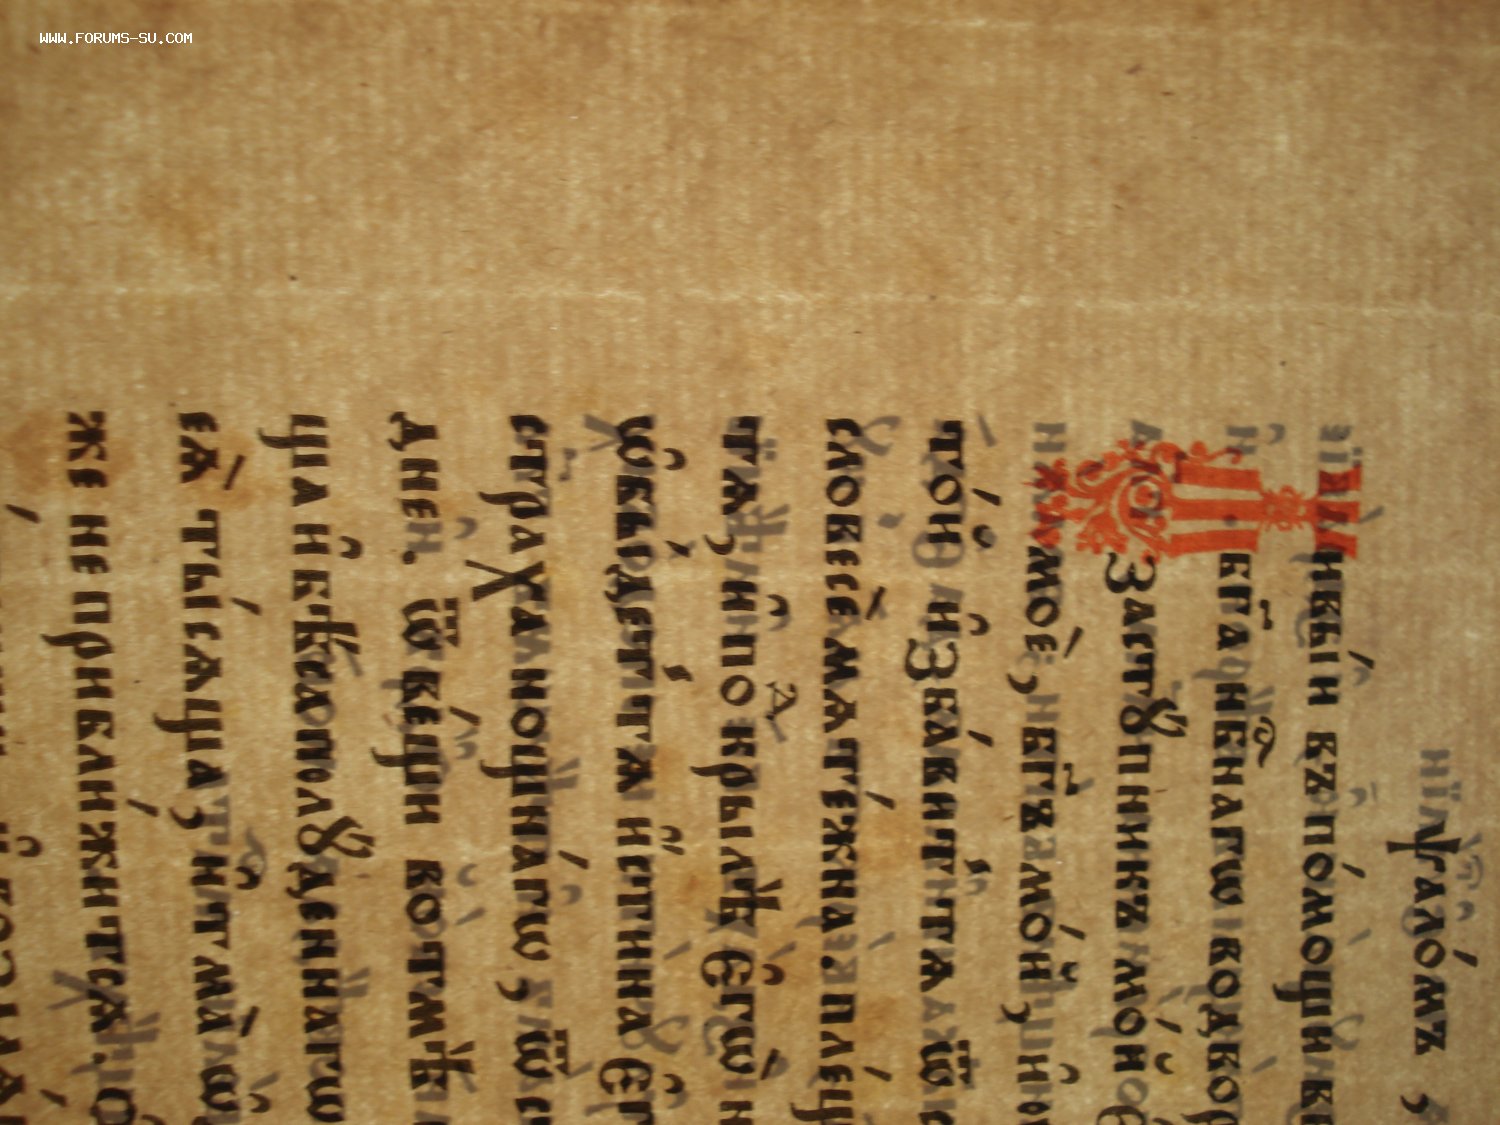 WWW.FORUMS-SU.COM
Ѱало́мъ ,
Живы́и въпо́мощи вы
бг҃а нбⷭ҇наго водвор
Застꙋпникъ мо́й є
моѐ, бг҃ъ мо́й, и҆
то́й и҆зба́витъ тѧ ѿ с
словесѐ мѧте́жна. плещ
та, и҆подⷣ крылѣ є҆гѡ̀ н
ѡ҆бы́детъ тѧ и҆́стина є҆г
страха нощна́гѡ, ѿ с
дне. ѿ ве́щи вотмѣ
ща и҆ бѣса полꙋденнагѡ
єѧ̀ ты́сѧща, и҆ тма̀ ѡ҆
же не прибли́житсѧ. ѻ